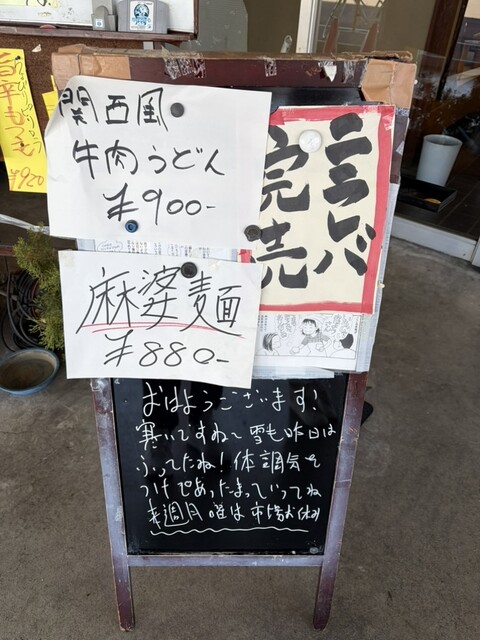 関西風
牛肉うどん
¥900-
麻婆麺
¥880-
ニラレバ
完売
旨辛もつ煮
¥920
おはようございます!
寒いですね〜雪も昨日は
ふってたね!体調気を
つけてあったまっていってね
来週月曜は市場お休み